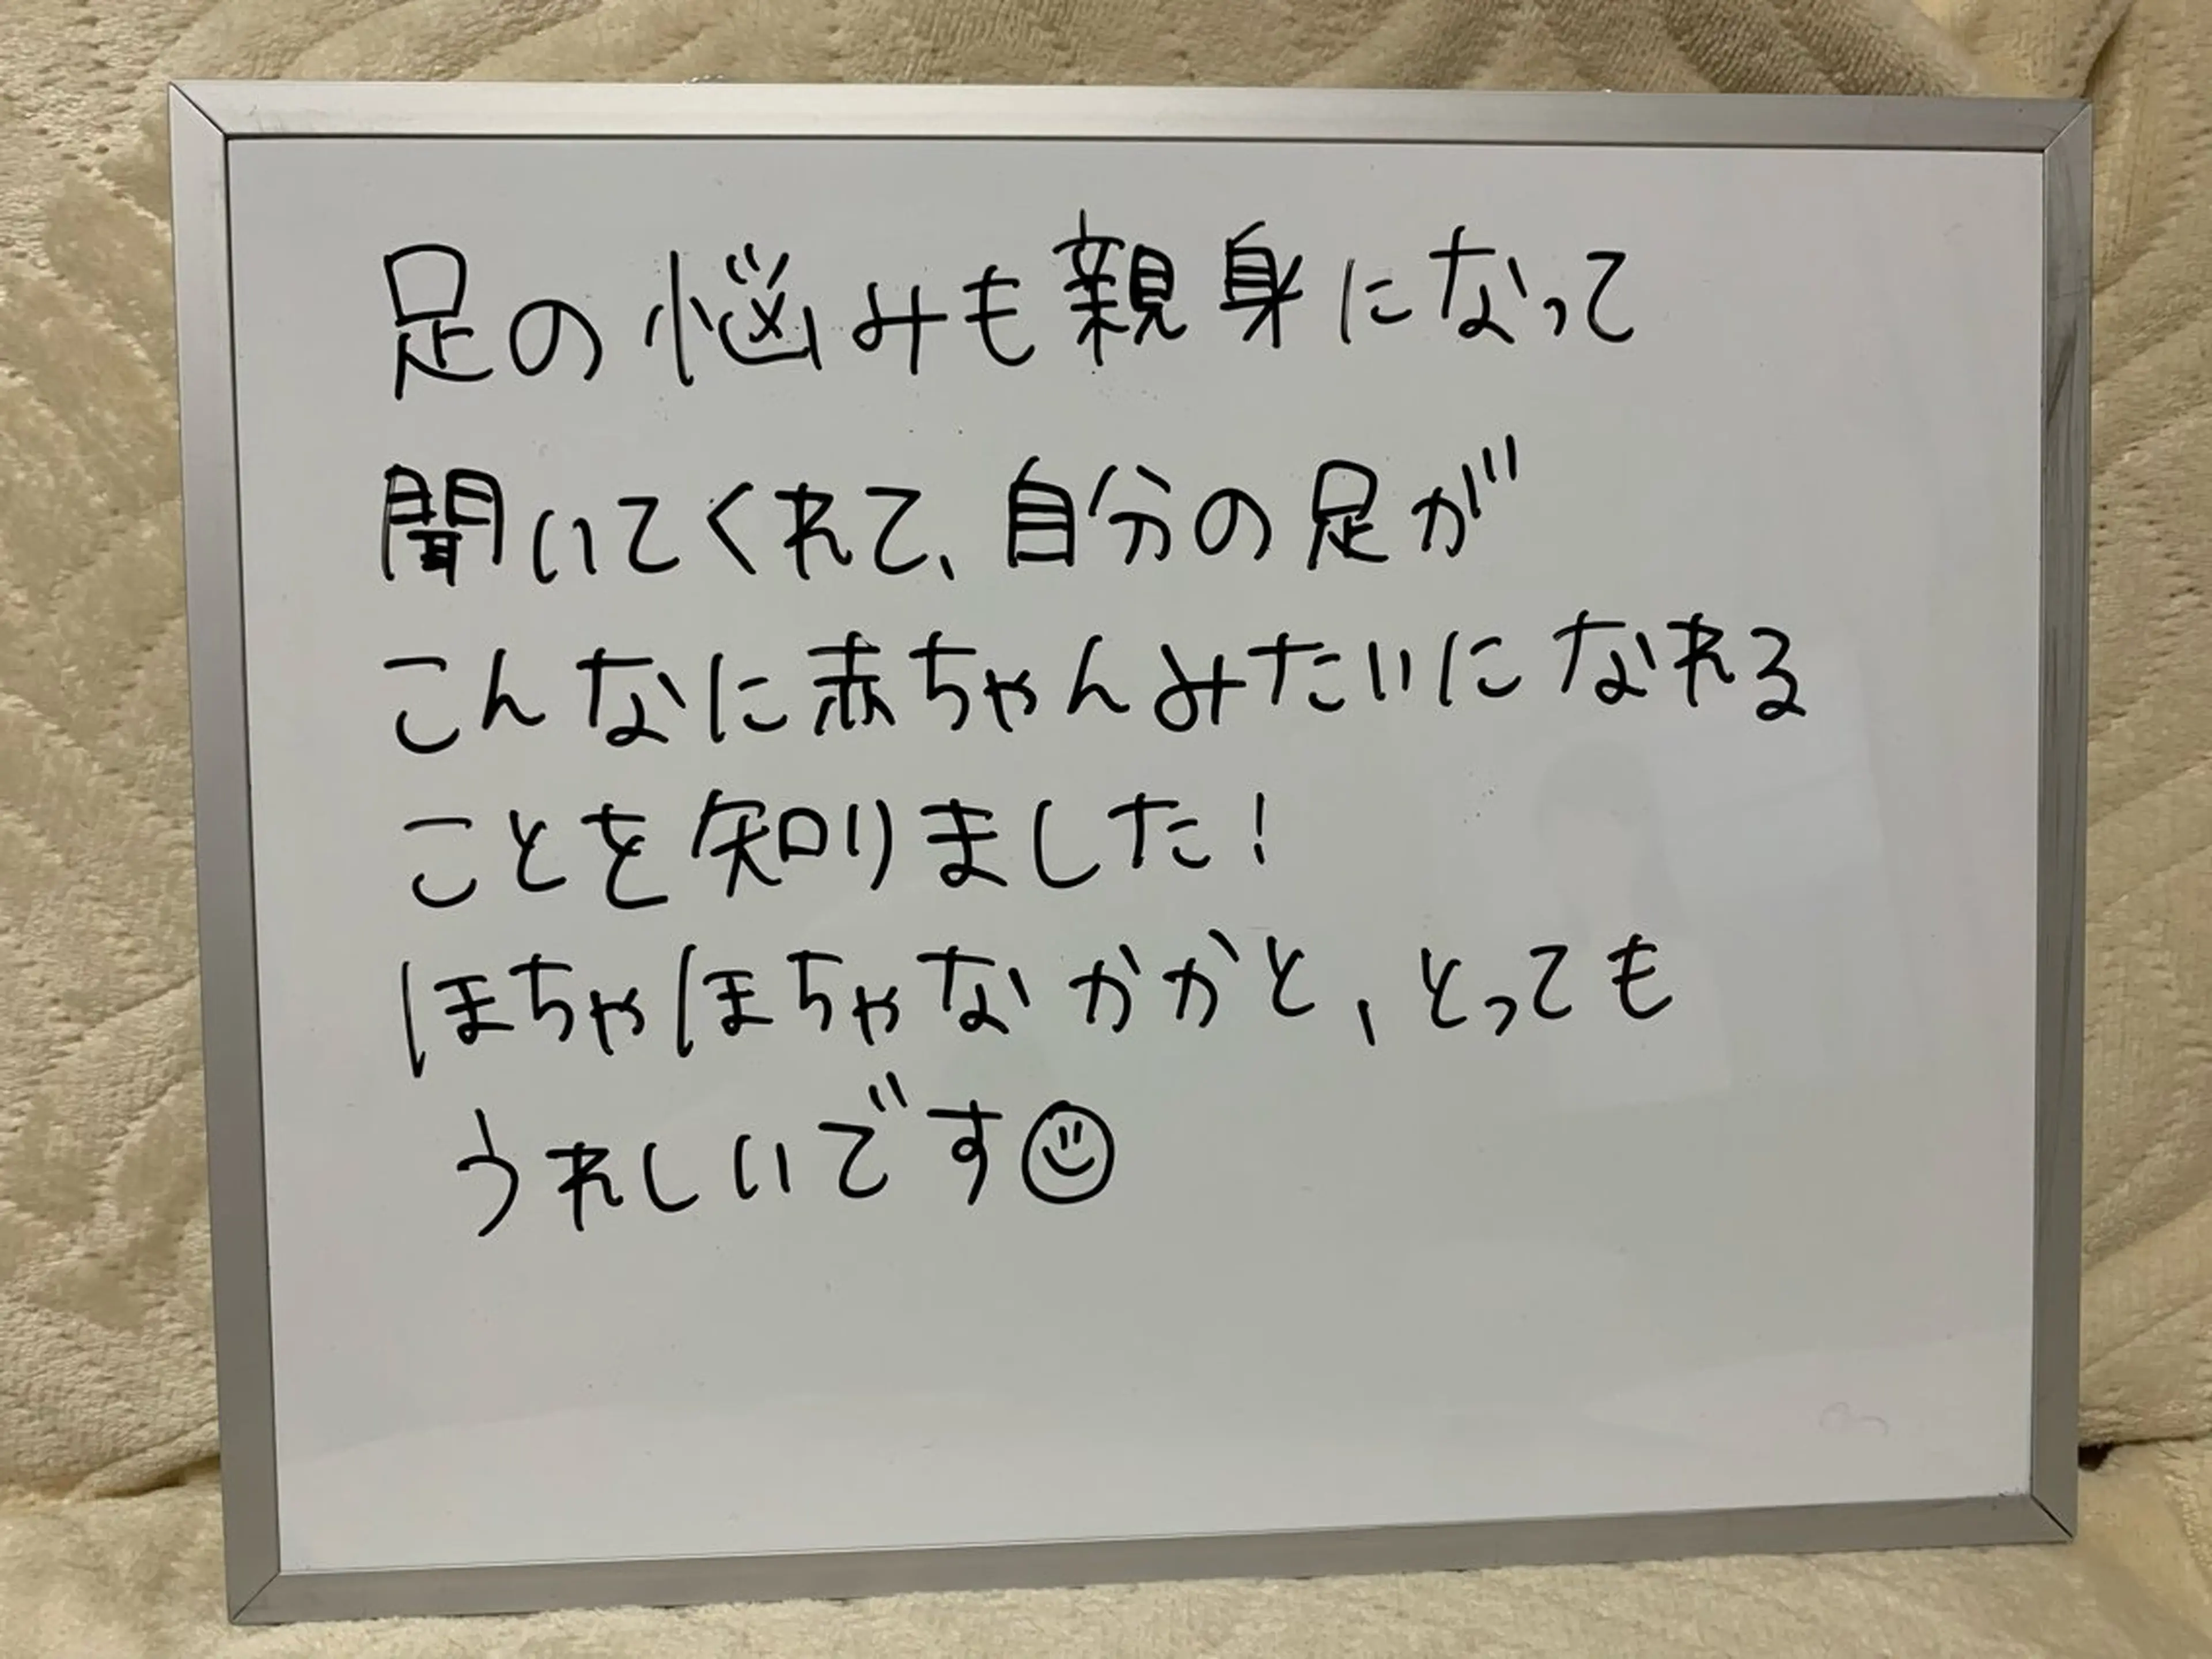 足の悩みも親身になって
聞いてくれて、自分の足が
こんなに赤ちゃんみたいになれる
ことを知りました!
ほちゃほちゃなかかと、とっても
うれしいです☺